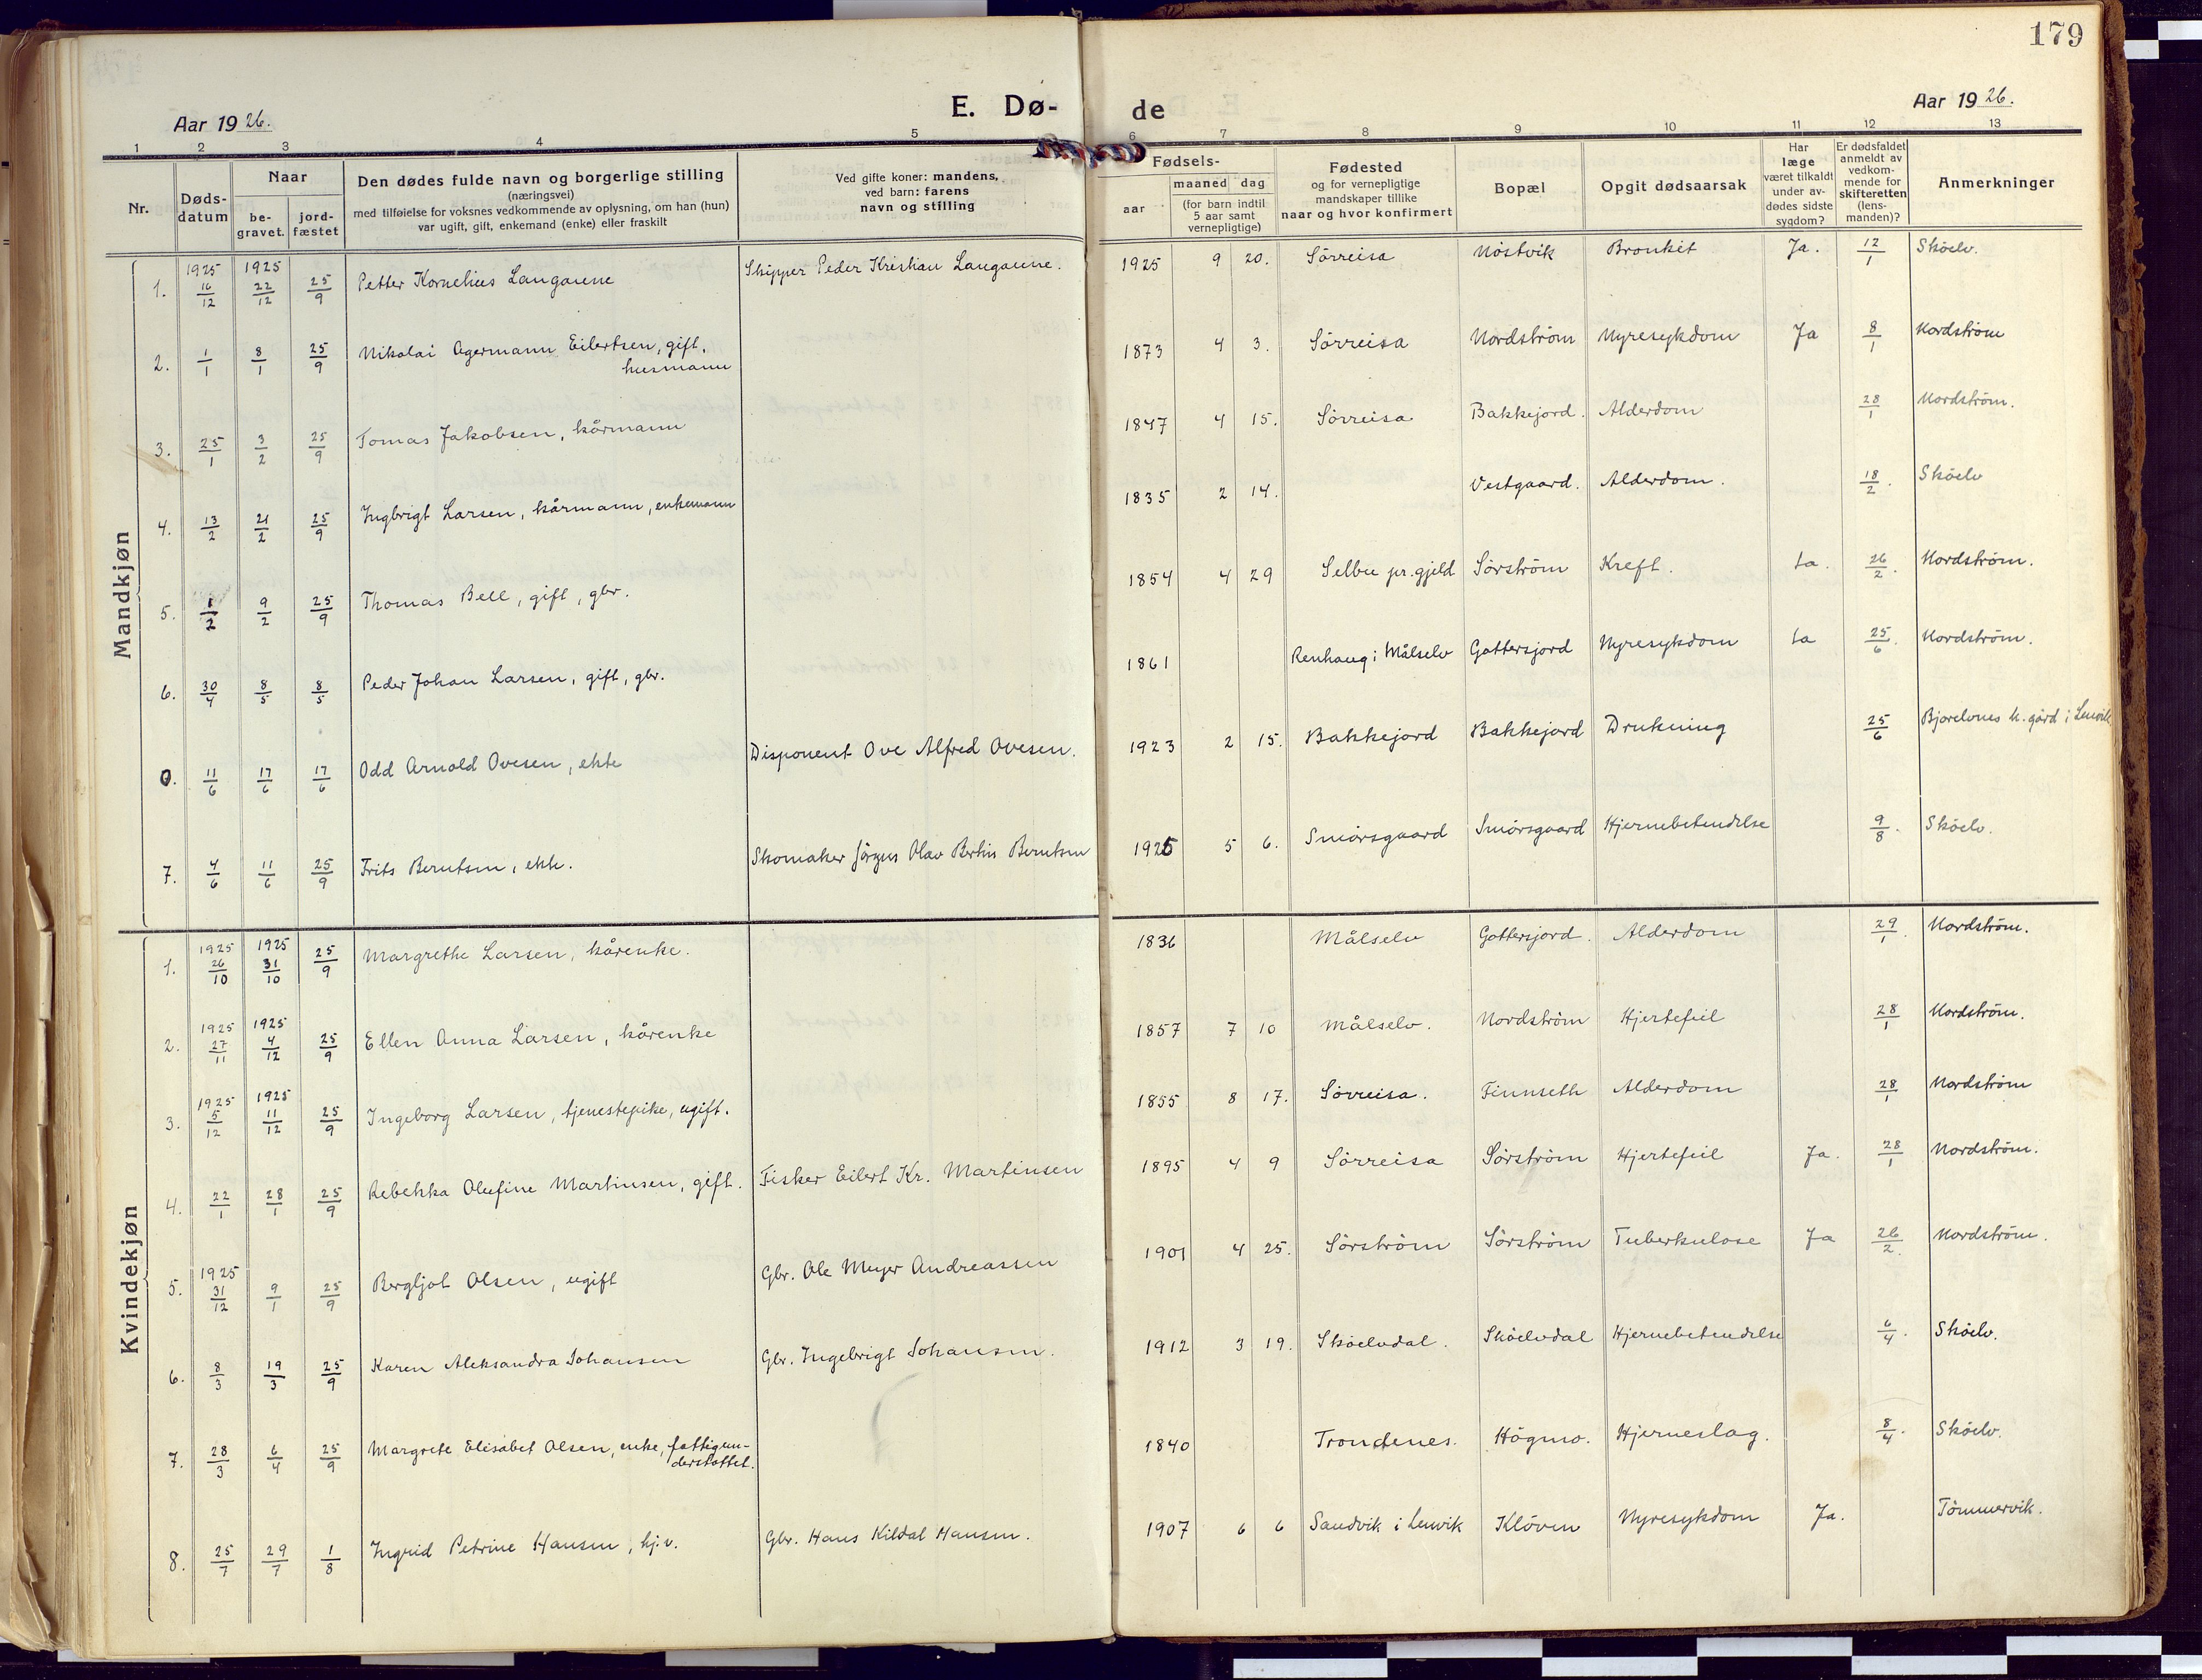 179
Aar 1926.
E. Dø-
de
Aar 1926.
1 2 3 4 5 6 7 8 9 10 11 12 13
Nr.
Døds-
datum
Naar
be-
gravet.
jord-
fæstet
Den dødes fulde navn og borgerlige stilling
(næringsvei)
med tilføielse for voksnes vedkommende av oplysning, om han (hun)
var ugift, gift, enkemand (enke) eller fraskilt
Ved gifte koner: mandens,
ved barn: farens
navn og stilling
Fødsels-
aar
maaned dag
(for barn indtil
5 aar samt
vernepligtige)
Fødested
og for vernepligtige
mandskaper tillike
naar og hvor konfirmert
Bopæl
Opgit dødsaarsak
Har
læge
været tilkaldt
under av-
dødes sidste
sygdom?
Er dødsfaldet
anmeldt av
vedkom-
mende for
skifteretten
(lens-
manden)?
Anmerkninger
Mandkjøn
1. 1925 16/12 1925 22/12 25/9 Petter Kornelius Langaune Skipper Peder Kristian Langaune. 1925 9 20. Sörreisa Nöstvik Bronkit Ja. 12/1 Sköelv.
2. 1/1 8/1 25/9 Nikolai Agermann Eilertsen, gift, husmann 1873 4 3. Sörreisa Nordström Nyresykdom Ja 8/1 Nordström
3. 25/1 3/2 25/9 Tomas Jakobsen, kårmann 1847 4 15. Sörreisa Bakkejord. Alderdom 28/1 Nordström.
4. 13/2 21/2 25/9 Ingbrigt Larsen, kårmann, enkemann 1835 2 14. Vestgaard. Alderdom. 18/2. Sköelv
5. 1/2 9/2 25/9 Thomas Bell, gift, gbr. 1854 4 29 Selbu pr.gjeld Sörström Kreft. Ja. 26/2. Nordström.
6. 30/4 8/5 8/5 Peder Johan Larsen, gift, gbr. 1861 Renhaug i Målselv Gottersjord Nyresykdom Ja 25/6. Nordström.
0. 11/6 17/6 17/6 Odd Arnold Ovesen, ekte Disponent Ove Alfred Ovesen. 1923 2 15. Bakkejord Bakkejord Drukning 25/6 Bjorelvnes k. gård i Lenvik
7. 4/6 11/6 25/9 Frits Berntsen, ekte. Skomaker Jörgen Olav Bertin Berntsen 1925 5 6. Smörsgaard Smörsgaard Hjernebetendelse 9/8. Sköelv.
Kvindekjøn
1. 1925 26/10 1925 31/10 25/9 Margrethe Larsen, kårenke. 1836 Målselv Gottersjord. Alderdom 29/1. Nordström.
2. 1925 27/11 1925 4/12 25/9 Ellen Anna Larsen, kårenke 1857 7 10 Målselv. Nordström Hjertefeil 28/1 Nordström.
3. 1925 5/12 1925 11/12 25/9 Ingeborg Larsen, tjenestepike, ugift. 1855 8 17. Sörreisa. Finnseth Alderdom 28/1 Nordström
4. 22/1 28/1 25/9 Rebekka Olufine Martinsen, gift. Fisker Eilert Kr. Martinsen 1895 4 9 Sörreisa Sörström Hjertefeil Ja. 28/1 Nordström.
5. 1925 31/12 9/1 25/9 Bergljot Olsen, ugift Gbr. Ole Meyer Andreassen 1901 4 25. Sörström Sörström Tuberkulose Ja 26/2. Nordström.
6. 8/3 19/3 25/9 Karen Aleksandra Johansen Gbr. Ingebrigt Johansen. 1912 3 19. Sköelvdal. Sköelvdal Hjernebetendelse 6/4. Sköelv.
7. 28/3 6/4 25/9 Margrete Elisabet Olsen, enke, fattigun-
derstöttet. 1840 Trondenes. Högmo. Hjerneslag. 8/4. Sköelv.
8. 25/7 29/7 1/8 Ingrid Petrine Hansen, hj.v. Gbr. Hans Kildal Hansen. 1907 6 6 Sandvik i Lenvik Klöven Nyresykdom Ja. Tömmervik.